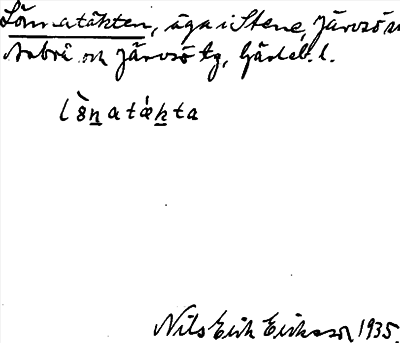 Lönnatäkten, äga i Stene, Järvsö sn
Arbrå och Järvsö tg, Gävleb. l.
lö̀natǽkta
Nils Erik Eriksson 1935.